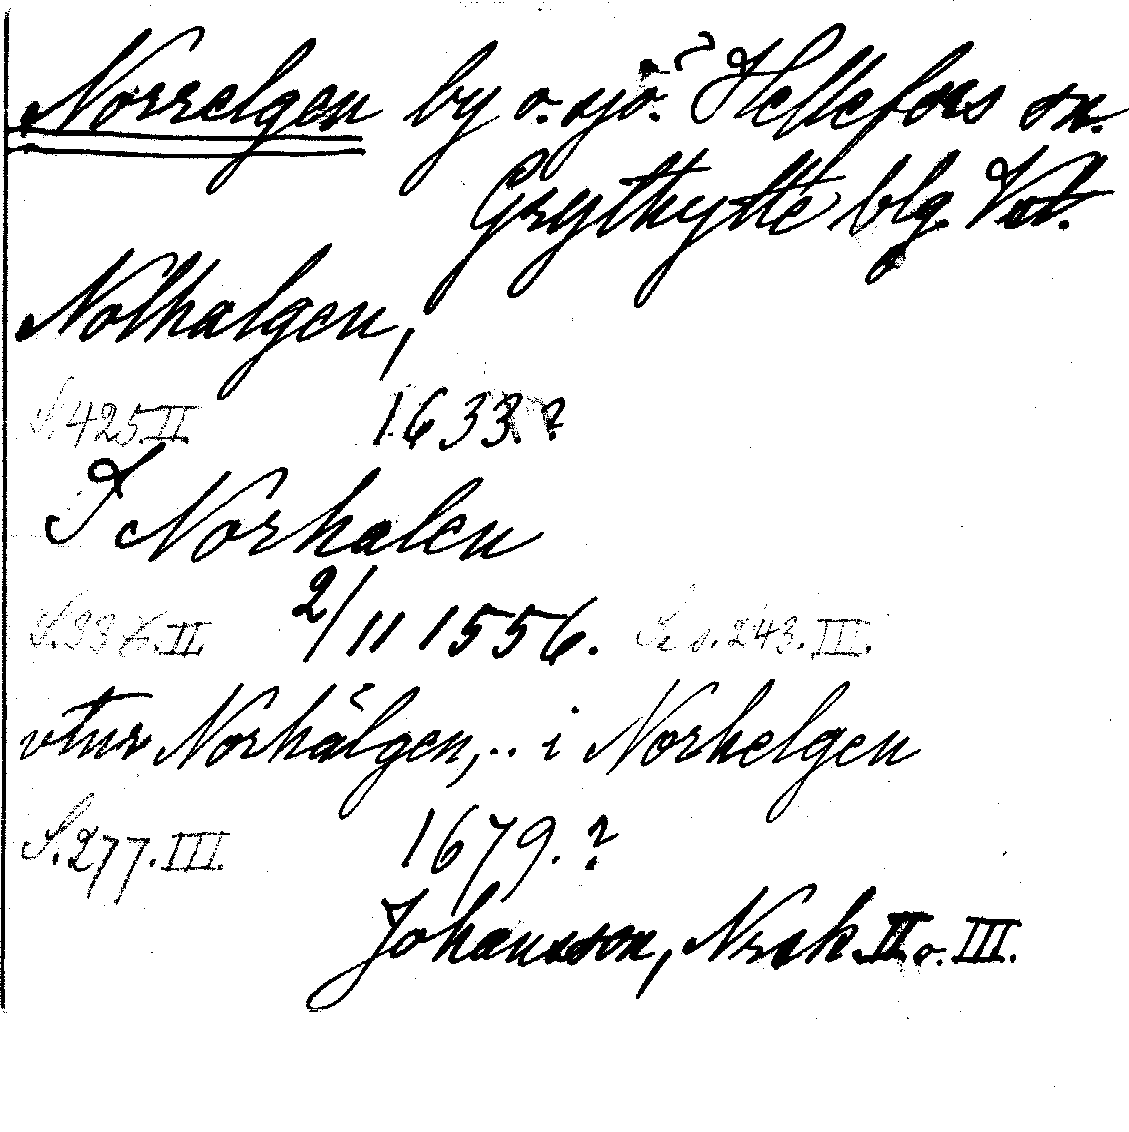 Norrelgen by o. sjö.? Hellefors sn.
Grythytte blg. Vstl.
Nolhalgen,
S. 425. II. 1633.?
I Norhalen
S. 98 II. 2/11 1556. Se s. 243. III.
utur Norhälgen,.. i Norhelgen
S. 277. III. 1679.?
Johansson, Nrsk II o. III.